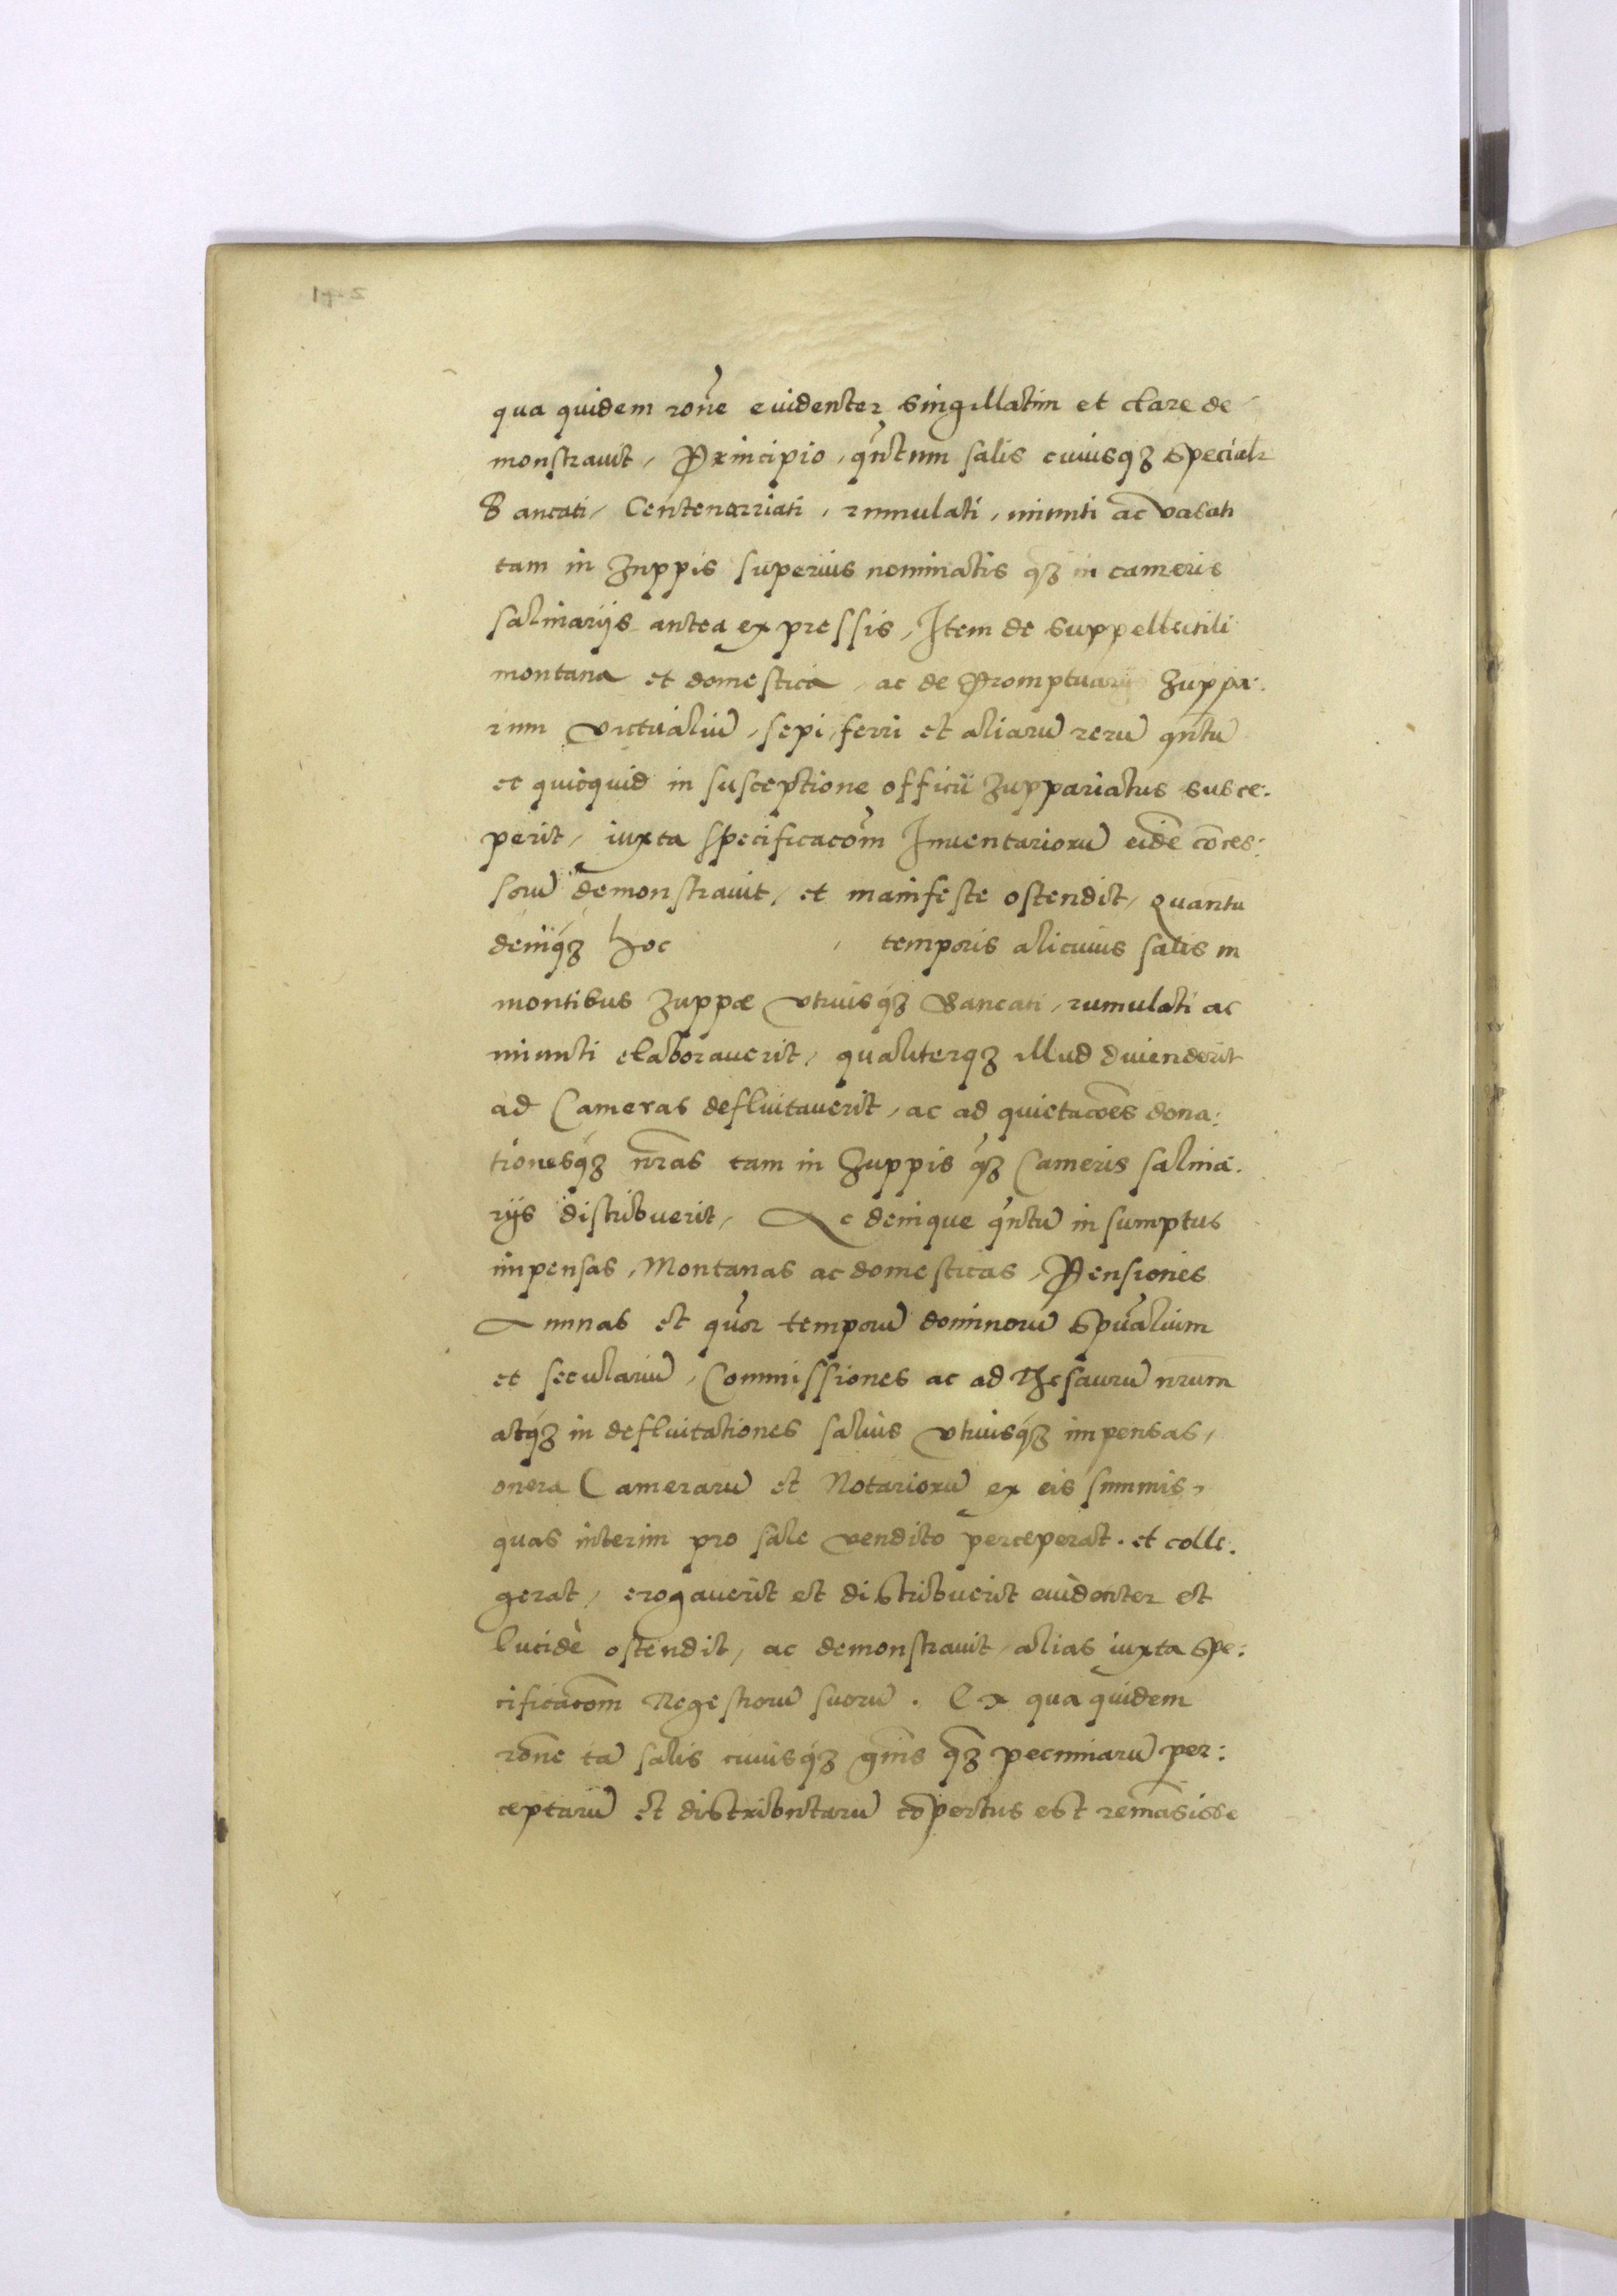 qua quidem rõne euidenter singillatim et clare de
monstrauit, Principio, qñtum salis cuiusqz speciali
Bancati, Centenarriati, rumulati, minuti ac vasati
tam in Zuppis superius nominatis qz in cameris
salinarijs antea expressis, Item de suppellectili
montana et domestica, ac de Promptuarijs Zuppa:
rum victualiũ, sepi, ferri et aliarũ rerũ qñtũ
et quicquid in susceptione officii Zuppariatus susce:
perit, iuxta specificacõm Inuentariorũ eidẽ cõces:
sorũ demonstrauit, et manifeste ostendit, Quantũ
deniqz hoc , temporis alicuius salis in
montibus Zuppæ vtriusqz Bancati, rumulati ac
minuti elaborauerit, qualiterqz illud diuenderit
ad Cameras defluitauerit, ac ad quietacões dona:
tionesqz nr̃as tam in Zuppis qz Cameris salina:
rijs distribuerit, Ac denique qñtũ in sumptus
impensas, Montanas ac domesticas, Pensiones
Annnas et qũor temporũ dominorũ spũalium
et seculariũ, Commissiones ac ad Thesaurũ nr̃um
atqz in defluitationes saliũs vtriusqz impensas,
onera Camerarũ et Notariorũ ex eis summis,
quas interim pro sale vendito perceperat. et colle:
gerat, erogauerit et distribuerit euidenter et
lucidè ostendit, ac demonstrauit, alias iuxta spe:
cificacõm Regestrorũ suorũ. Ex qua quidem
rõne tã salis cuiusqz gñis qz pecuniarũ per:
ceptarũ et distributarũ cõpertus est remãsisse